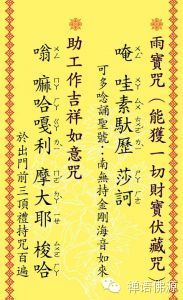 雨寶咒（能獲一切財寶伏藏咒）
唵 哇素馱歷 莎訶
可多唸誦聖號：南無持金剛海音如來
助工作吉祥如意咒
嗡 嘛哈嘎利 摩大耶 梭哈
於出門前三頂禮持咒百遍
禅语佛源